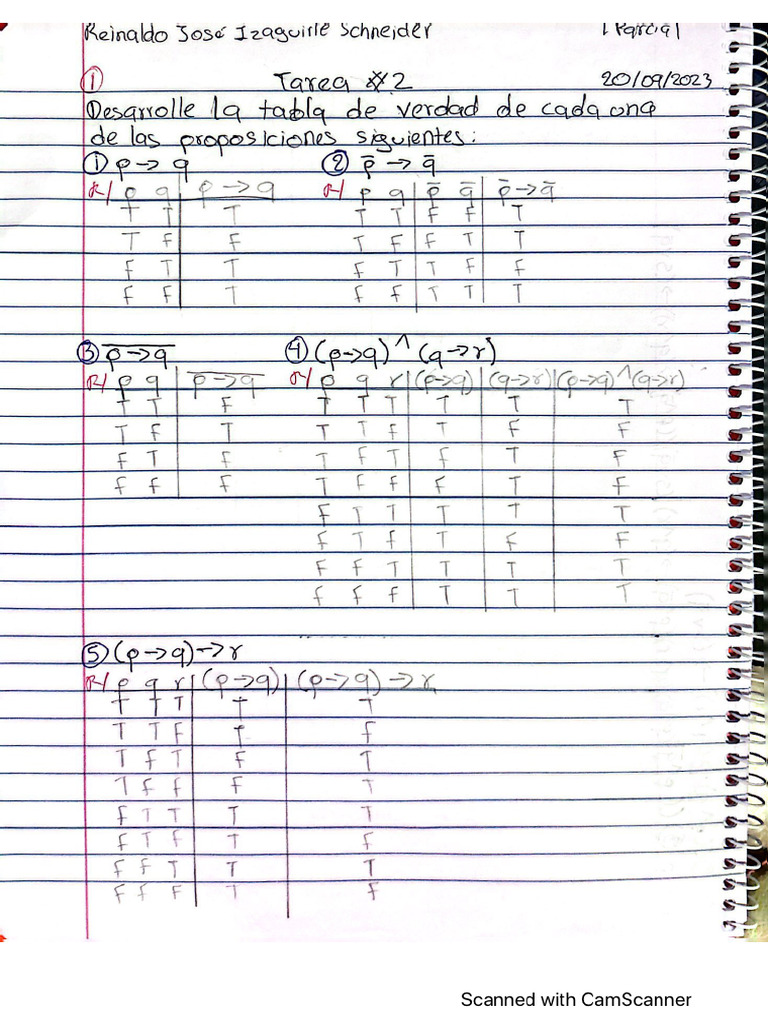 Reinaldo José Izaguirre Schneider I Parcial
① Tarea #2 20/09/2023
Desarrolle la tabla de verdad de cada una
de las proposiciones siguientes:
① p→q ② p̄→q̄
R/ p q | p→q R/ p q | p̄ q̄ | p̄→q̄
T T | T T T | F F | T
T F | F T F | F T | T
F T | T F T | T F | F
F F | T F F | T T | T
③ p̅→̅q̅ ④ (p→q)^(q→r)
R/ p q | p̅→̅q̅ R/ p q r | (p→q) | (q→r) | (p→q)^(q→r)
T T | F T T T | T | T | T
T F | T T T F | T | F | F
F T | F T F T | F | T | F
F F | F T F F | F | T | F
F T T | T | T | T
F T F | T | F | F
F F T | T | T | T
F F F | T | T | T
⑤ (p→q)→r
R/ p q r | (p→q) | (p→q)→r
T T T | T | T
T T F | T | F
T F T | F | T
T F F | F | T
F T T | T | T
F T F | T | F
F F T | T | T
F F F | T | F
Scanned with CamScanner